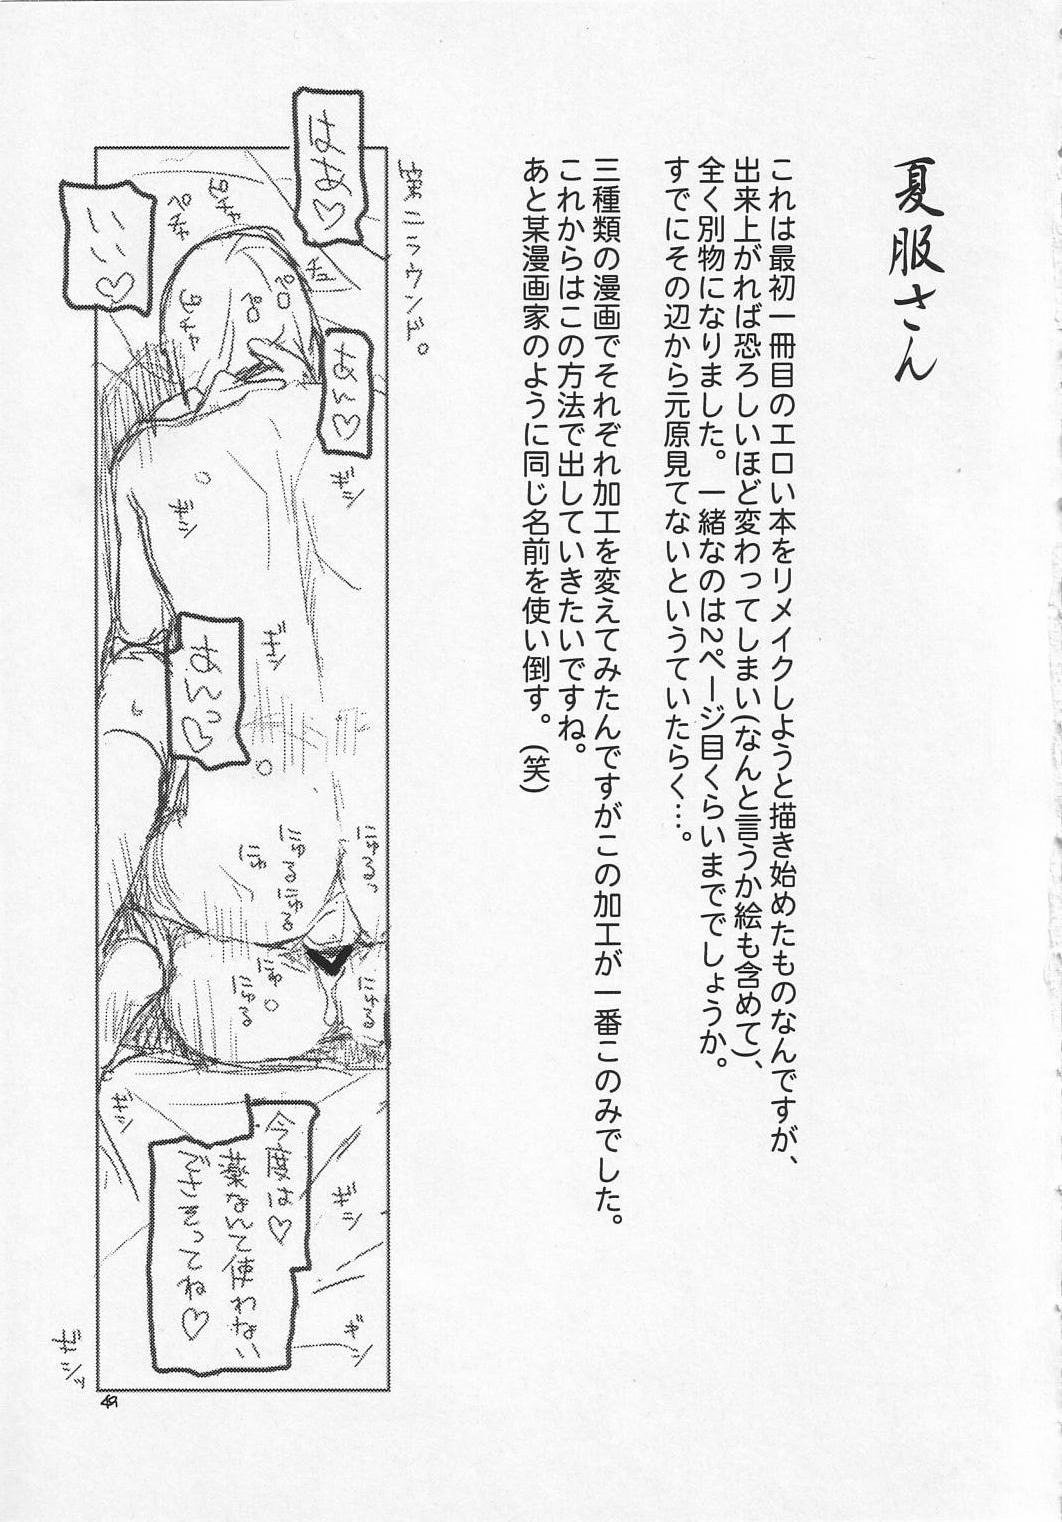 夏服さん
これは最初一冊目のエロい本をリメイクしようと描き始めたものなんですが、
出来上がれば恐ろしいほど変わってしまい(なんと言うか絵も含めて)、
全く別物になりました。一緒なのは2ページ目くらいまででしょうか。
すでにその辺から元原見てないというていたらく…。
三種類の漫画でそれぞれ加工を変えてみたんですがこの加工が一番このみでした。
これからはこの方法で出していきたいですね。
あと某漫画家のように同じ名前を使い倒す。(笑)
第二ラウンド。
はあ♡
いい♡
あん♡
あんっ♡
ピチャ
ペチャ
チュ
ペロ
ペロ
ギシ
ギシ
ギシ
にゅるっ
にゅる
にゅる
にゅ
にゅ
にゅる
にゅる
ギシ
ギシ
ギシ
今度は♡
薬なんて使わない
でさせってね♡
ギシッ
49